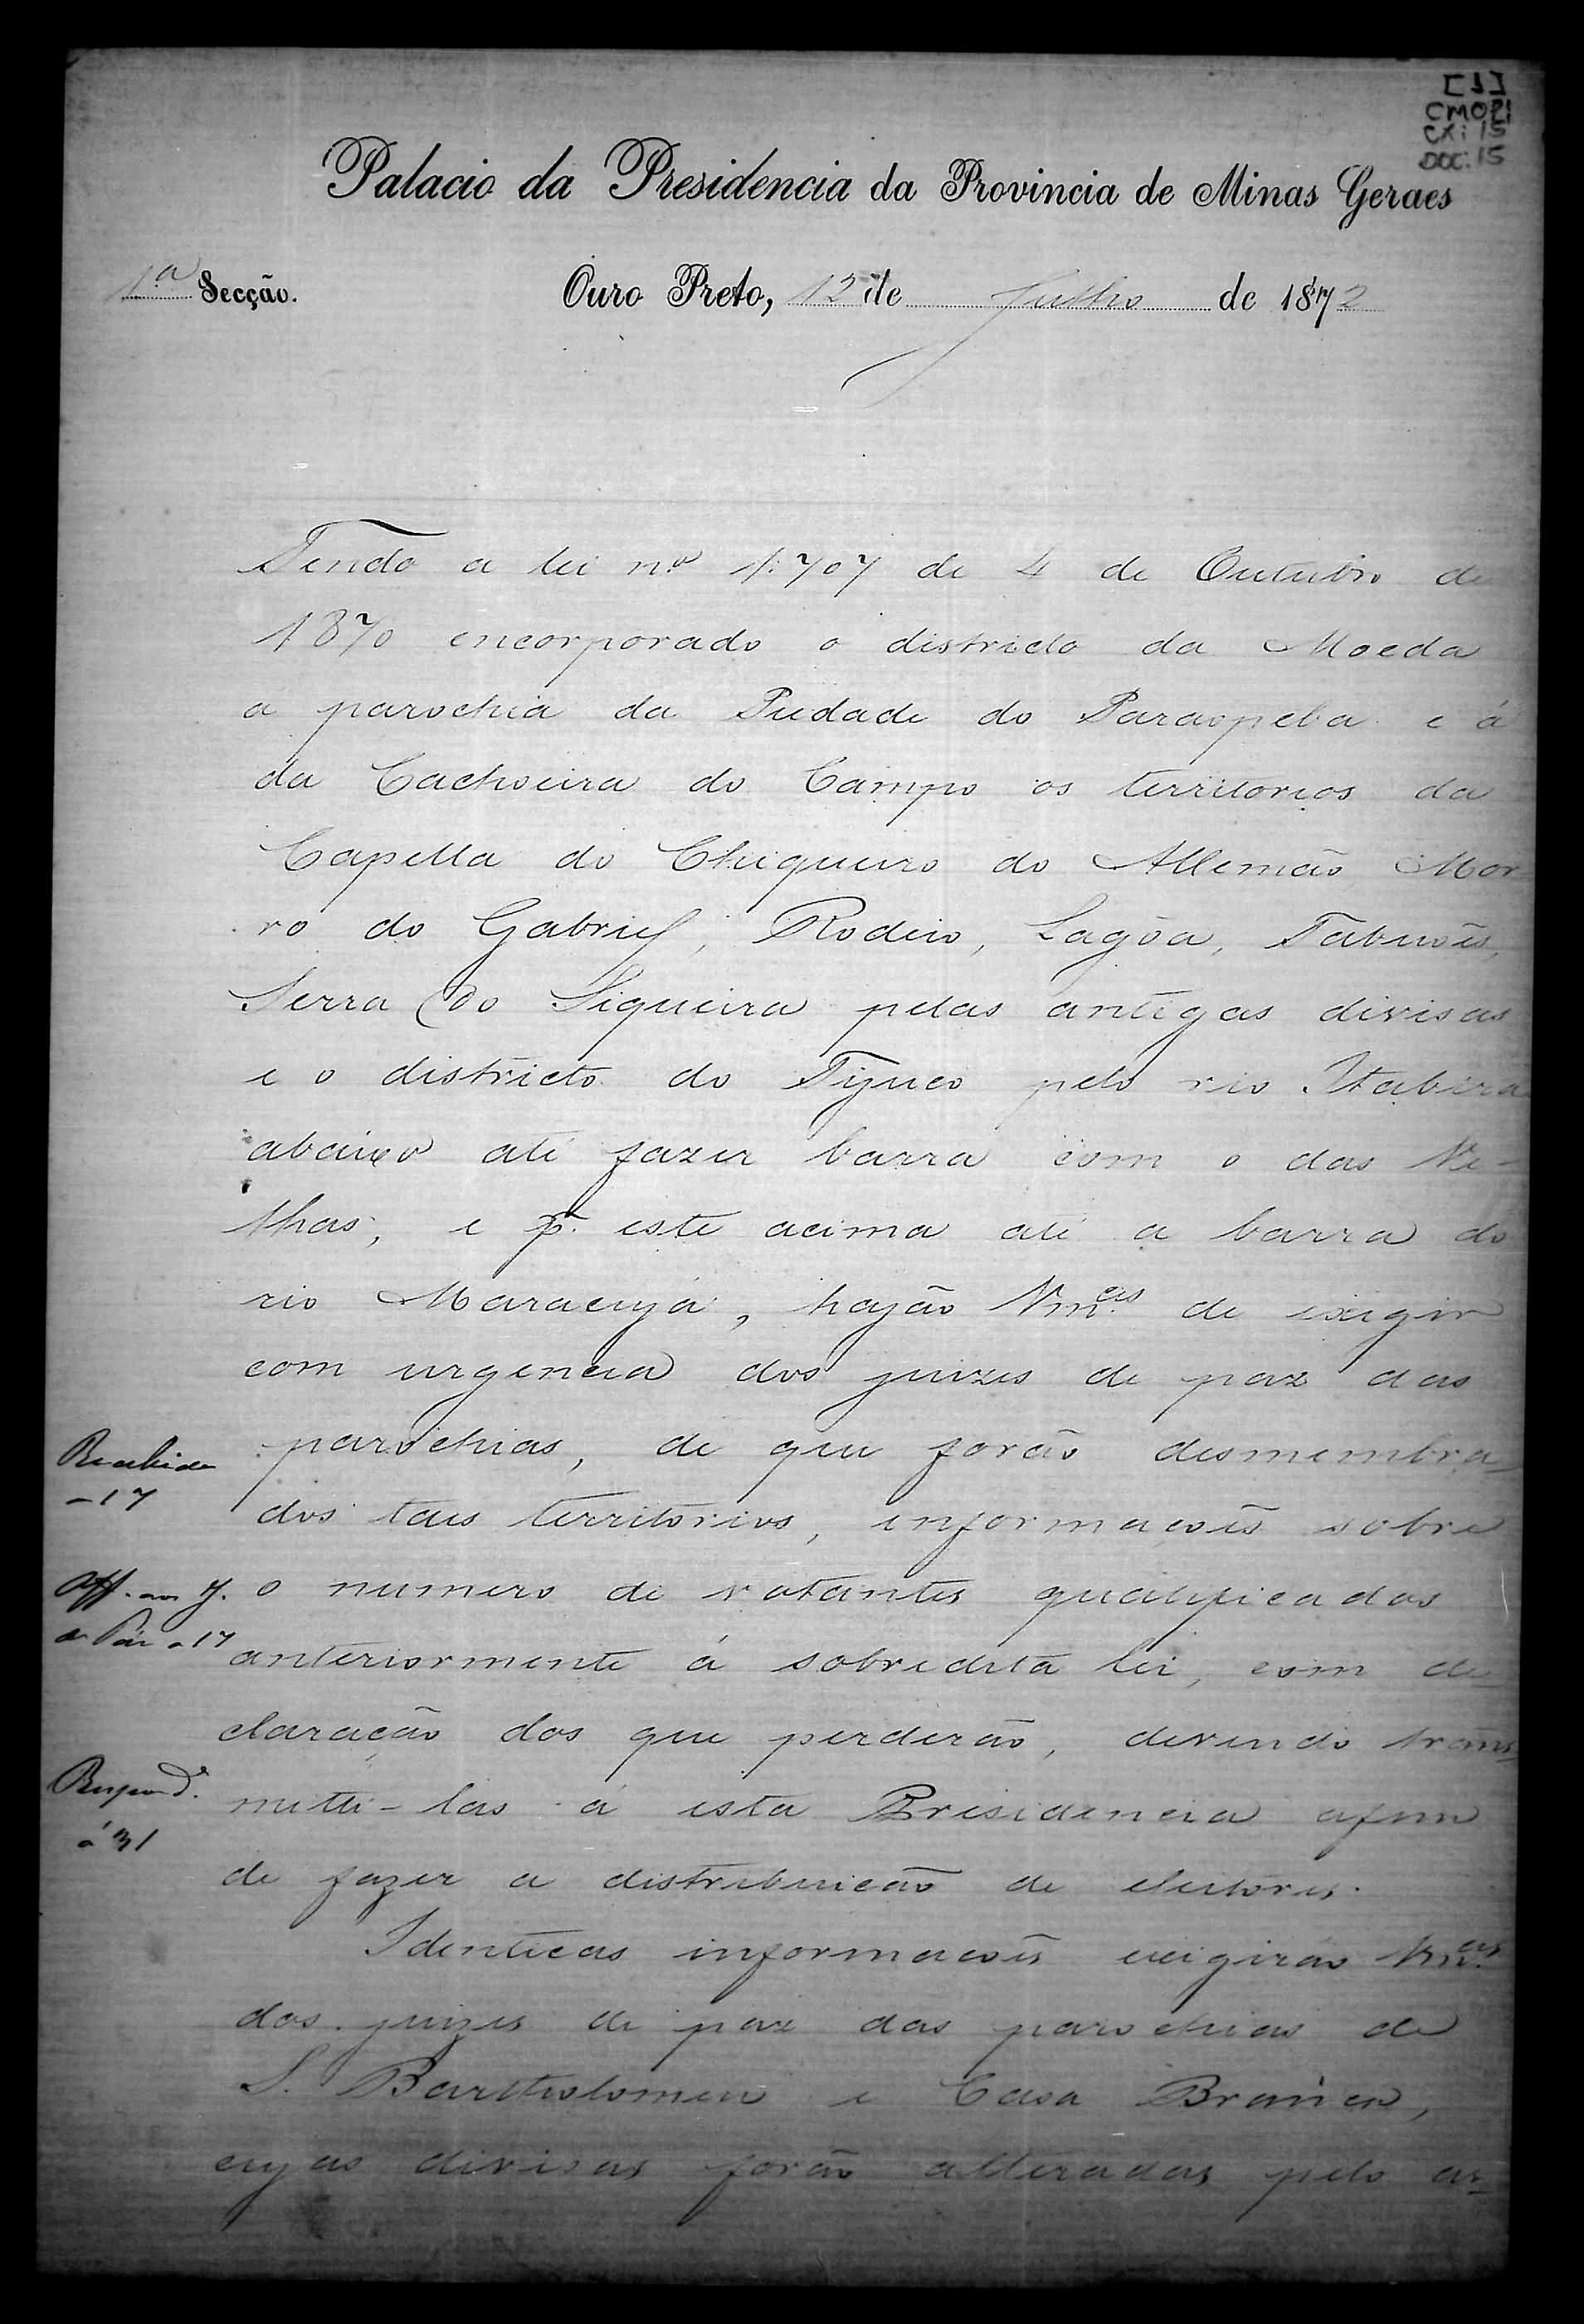 [1]
CMOP1
CX: 15
DOC: 15
Palacio da Presidencia da Provincia de Minas Geraes
1.ª Secção.
Ouro Preto, 12 de Julho de 1872
Tendo a lei n.º 1:707 de 4 de Outubro de
1870 encorporado o districto da Moeda
a parochia da Piedade do Paraopeba e á
da Cachoeira do Campo os territorios da
Capella do Chiqueiro do Allemão Mor
ro do Gabriel, Rodeio, Lagôa, Tabuões,
Serra do Siqueira pelas antigas divisas
e o districto do Tijuco pelo rio Itabira
abaixo até fazer barra com o das Ve-
lhas, e p.r este acima até a barra do
rio Maracujá, hajão Vm.ces de exigir
com urgencia dos juizes de paz das
parochias, de que forão desmembra-
dos taes territorios, informações sobre
o numero de votantes qualificados
anteriormente á sobredita lei, com de-
claração dos que perderão, devendo trans-
mitti-las á esta Presidencia afim
de fazer a distribuicão de eleitores.
Identicas informacões exigirão Vm.ces
dos juizes de paz das parochias de
S. Bartholomeu e Casa Branca,
cujas divisas forão alteradas pelo ar-
Recebido
-17
Off. aos J.
de Páz a 17
Respond.o
á 31